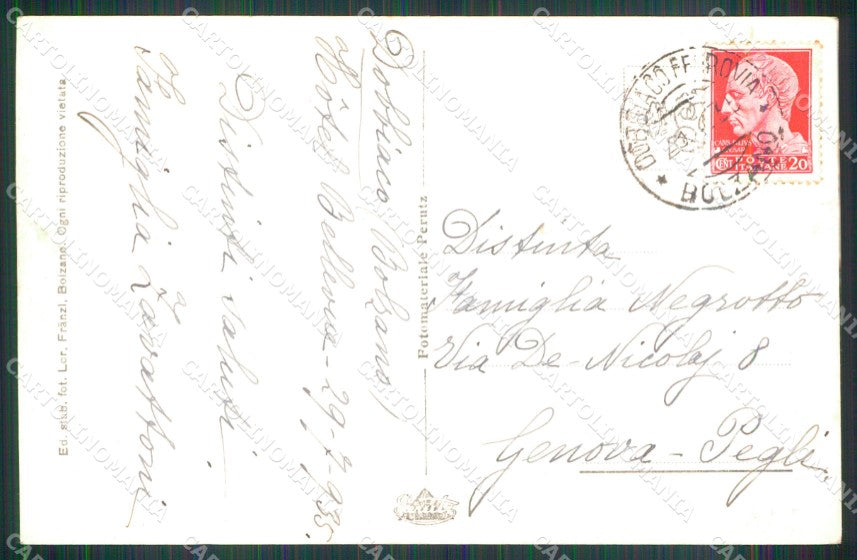 Dobbiaco (Bolzano)
Hôtel Bellevue - 29-7-935.
Distinti saluti
Famiglia Zavattoni
Ed. stab. fot. Lor. Fränzl, Bolzano. Ogni riproduzione vietata
Fotomateriale Perutz
DOBBIACO FERROVIA
BOLZANO
CENT 20
POSTE ITALIANE
Distinta
Famiglia Negrotto
Via De-Nicolaj 8
Genova - Pegli
CARTOLINOMANIA